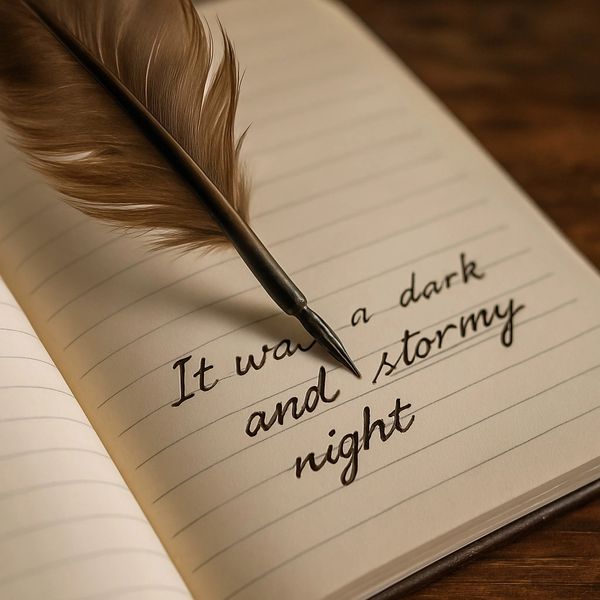 It was a dark
and stormy
night